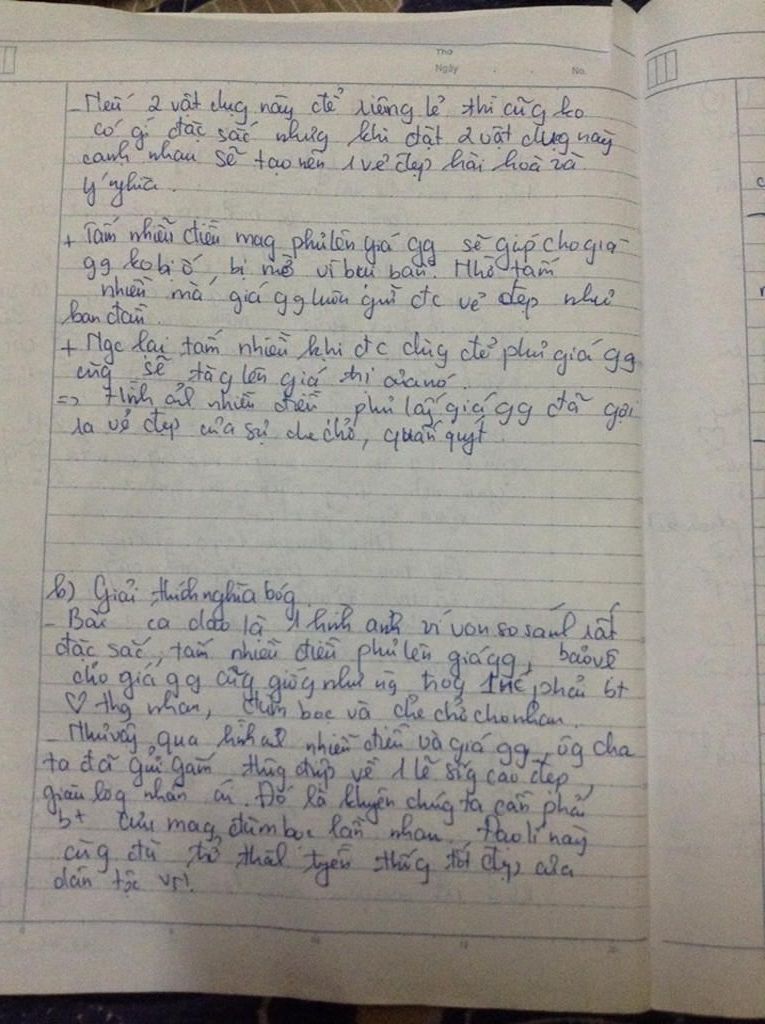 Thơ
Ngày . . No.
- Nếu 2 vật dụg này để riêng lẻ thì cũg ko
có gì đặc sắc nhưg khi đặt 2 vật dụg này
cạnh nhau sẽ tạo nên 1 vẻ đẹp hài hoà và
ý nghĩa.
+ Tấm nhiễu điều mag phủ lên giá gg sẽ giúp cho giá
gg ko bị ố, bị mờ vì bụi bẩn. Nhờ tấm
nhiễu mà giá gg luôn giữ đc vẻ đẹp như
ban đầu.
+ Ngc lại tấm nhiễu khi đc dùg để phủ giá gg
cũg sẽ tăg lên giá trị của nó.
=> Hình ảh nhiễu điều phủ lấy giá gg đã gợi
ra vẻ đẹp của sự che chở, quấn quýt.
b) Giải thích nghĩa bóg
- Bài ca dao là 1 hình ảnh ví von so sánh rất
đặc sắc, tấm nhiễu điều phủ lên giá gg, bảo vệ
cho giá gg cũg giốg như ng trog 1 nc, phải bt
♡ thg nhau, đùm bọc và che chở cho nhau.
- Như vậy, qua hình ảh nhiễu điều và giá gg, ôg cha
ta đã gửi gắm thôg điệp về 1 lẽ sốg cao đẹp,
giàu lòg nhân ái. Đó là khuyên chúg ta cần phải
bt cưu mag, đùm bọc lẫn nhau. Đạo lí này
cũg đã trở thàh tryền thốg tốt đẹp của
dân tộc VN.